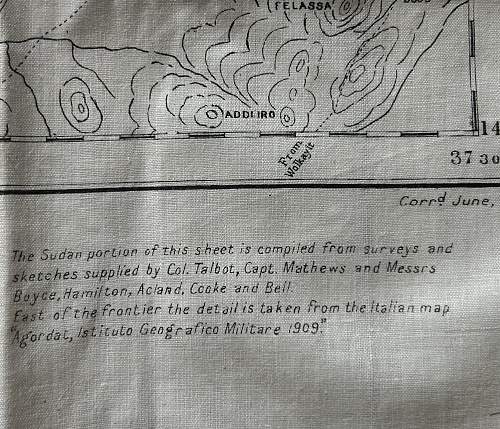 FELASSA
ADDI IRO
From
Walkayit
14
37 30
Corrd June,
The Sudan portion of this sheet is compiled from surveys and
sketches supplied by Col. Talbot, Capt. Mathews and Messrs
Boyce, Hamilton, Acland, Cooke and Bell.
East of the frontier the detail is taken from the Italian map
"Agordat, Istituto Geografico Militare 1909."